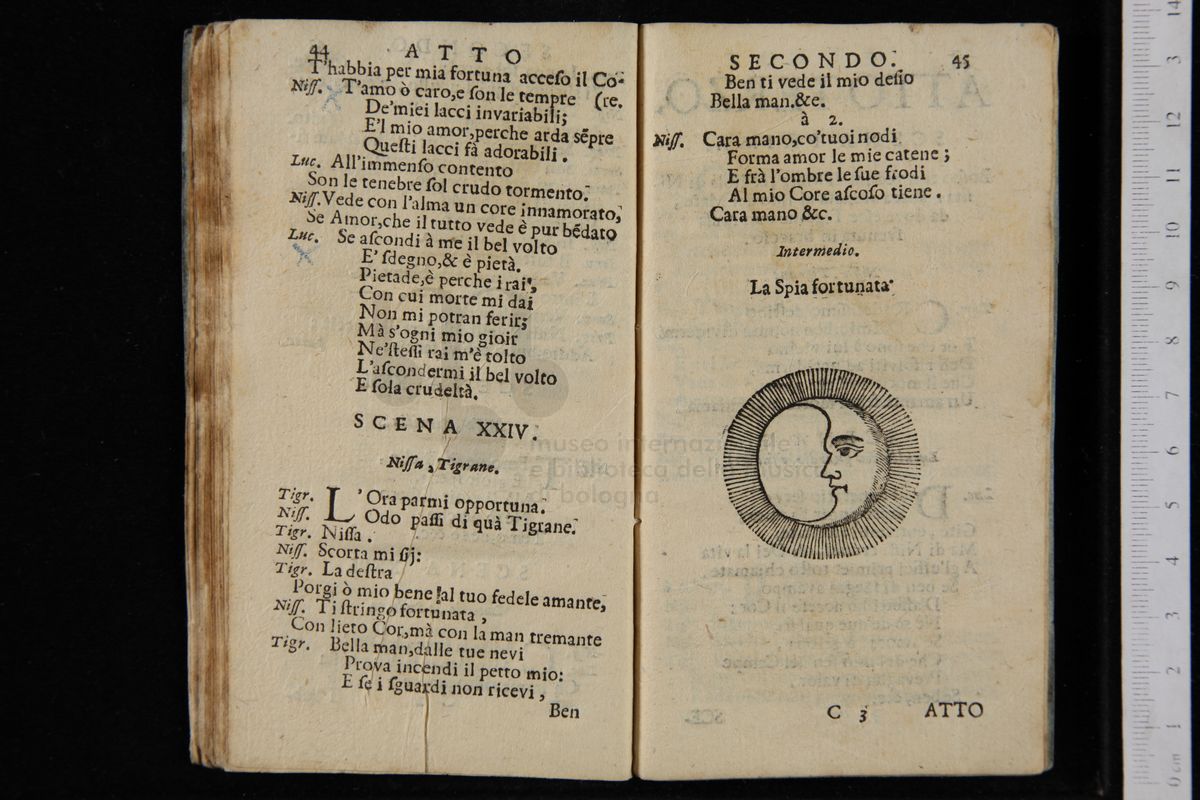 44 ATTO
T'habbia per mia fortuna acceſo il Co-
Niſſ. T'amo ò caro,e ſon le tempre (re.
De'miei lacci invariabili;
E'l mio amor,perche arda sẽpre
Queſti lacci fà adorabili.
Luc. All'immenſo contento
Son le tenebre ſol crudo tormento.
Niſſ.Vede con l'alma un core innamorato,
Se Amor,che il tutto vede è pur bẽdato
Luc. Se aſcondi à me il bel volto
E' ſdegno,& è pietà.
Pietade,è perche i rai,
Con cui morte mi dai
Non mi potran ferir;
Mà s'ogni mio gioir
Ne'ſteſſi rai m'è tolto
L'aſcondermi il bel volto
E ſola crudeltà.
SCENA XXIV.
Niſſa, Tigrane.
Tigr. L'Ora parmi opportuna.
Niſſ. Odo paſſi di quà Tigrane.
Tigr. Niſſa.
Niſſ. Scorta mi ſij:
Tigr. La deſtra
Porgi ò mio bene al tuo fedele amante,
Niſſ. Ti ſtringo fortunata,
Con lieto Cor,mà con la man tremante
Tigr. Bella man,dalle tue nevi
Prova incendi il petto mio:
E ſe i ſguardi non ricevi,
Ben
SECONDO. 45
Ben ti vede il mio deſio
Bella man.&c.
à 2.
Niſſ. Cara mano,co'tuoi nodi
Forma amor le mie catene;
E frà l'ombre le ſue frodi
Al mio Core aſcoſo tiene.
Cara mano &c.
Intermedio.
La Spia fortunata
C 3 ATTO
museo internazionale
e biblioteca della musica
di bologna
14
13
12
11
10
9
8
7
6
5
4
3
2
1
0 cm